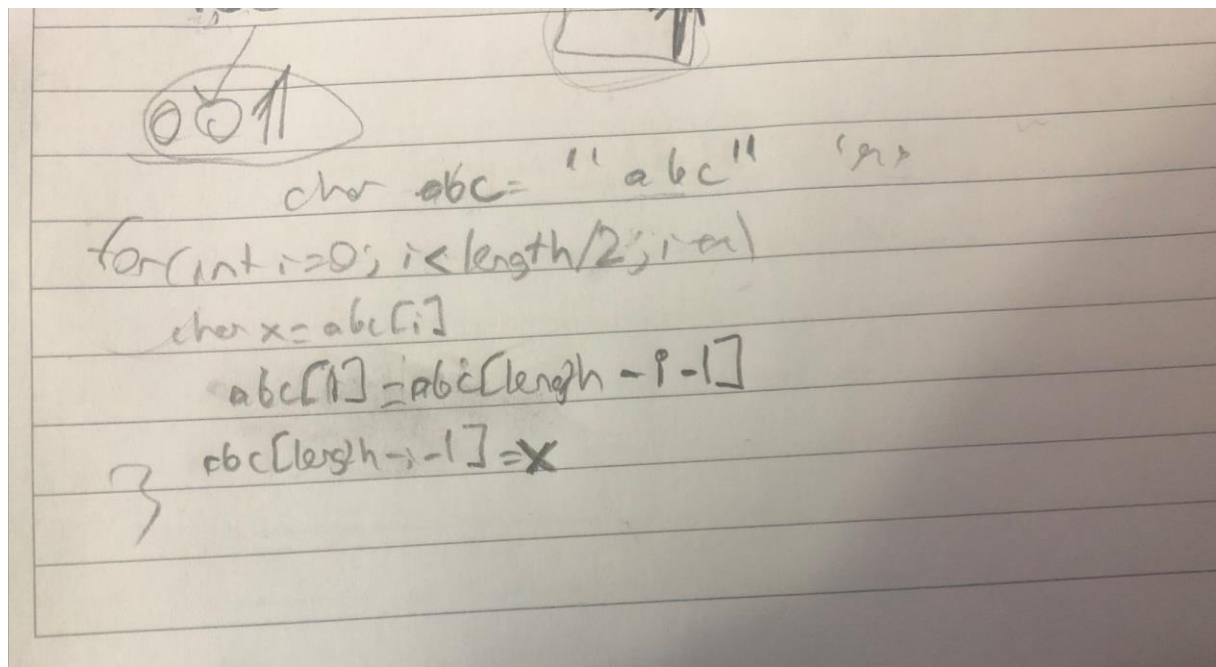 char abc = "abc"
for(int i=0; i<length/2; i++)
char x = abc[i]
abc[i] = abc[length - i - 1]
abc[length - i - 1] = x
}